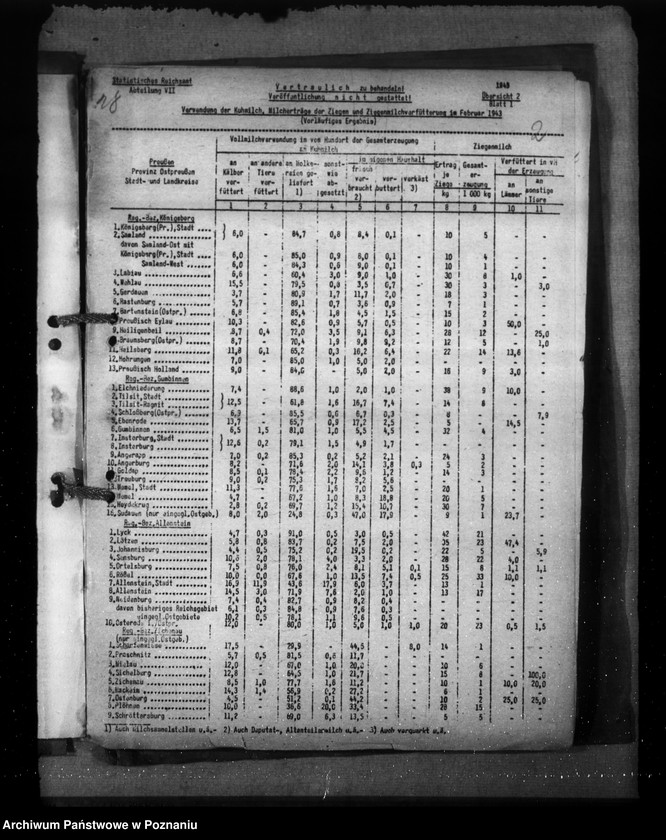 Statistisches Reichsamt
Abteilung VII
Vertraulich zu behandeln!
Veröffentlichung nicht gestattet!
1943
Übersicht 2
Blatt 1
2
Verwendung der Kuhmilch, Milcherträge der Ziegen und Ziegenmilchverfütterung im Februar 1943
(Vorläufiges Ergebnis)
Preußen
Provinz Ostpreußen
Stadt- und Landkreise
Vollmilchverwendung in vom Hundert der Gesamterzeugung
an Kuhmilch
Ziegenmilch
an Kälber verfüttert
an andere Tiere verfüttert
an Molkereien geliefert 1)
sonstwie abgesetzt
im eigenen Haushalt
frisch verbraucht 2)
verbuttert
verkäst 3)
Ertrag je Ziege kg
Gesamterzeugung 1 000 kg
Verfüttert in vH der Erzeugung
an Lämmer
an sonstige Tiere
1 2 3 4 5 6 7 8 9 10 11
Reg.-Bez. Königsberg
1. Königsberg (Pr.), Stadt
2. Samland 6,0 - 84,7 0,8 8,4 0,1 10 5 - -
davon Samland-Ost mit
Königsberg (Pr.), Stadt 6,0 - 85,0 0,9 8,0 0,1 10 4 - -
Samland-West 6,0 - 84,3 0,6 9,0 0,1 10 1 - -
3. Labiau 6,6 - 60,4 3,0 9,0 1,0 30 8 1,0 -
4. Wehlau 15,5 - 79,5 0,8 3,5 0,7 30 3 - 3,0
5. Gerdauen 3,7 - 80,9 1,7 11,7 2,0 18 3 - -
6. Rastenburg 5,7 - 89,1 0,7 3,6 0,9 7 1 - -
7. Bartenstein (Ostpr.) 6,8 - 85,4 1,8 4,5 1,5 15 2 - -
Preußisch Eylau 10,3 - 82,6 0,9 5,7 0,5 10 3 50,0 -
9. Heiligenbeil 8,7 0,4 72,0 3,5 9,1 6,3 28 12 - 25,0
Braunsberg (Ostpr.) 8,7 - 70,4 1,9 9,8 9,2 12 5 - 1,0
11. Heilsberg 11,8 0,1 65,2 0,3 16,2 6,4 22 14 13,6 -
12. Mohrungen 7,0 - 85,0 1,0 5,0 2,0
13. Preußisch Holland 9,0 - 84,0 - 5,0 2,0 16 9 3,0 -
Reg.-Bez. Gumbinnen
1. Elchniederung 7,4 - 88,6 1,0 2,0 1,0 38 9 10,0 -
2. Tilsit, Stadt
3. Tilsit-Ragnit 12,5 - 61,8 1,6 16,7 7,4 14 6 - -
4. Schloßberg (Ostpr.) 6,9 - 85,5 0,6 6,7 0,3 8 - - 7,9
5. Ebenrode 13,7 - 65,7 0,9 17,2 2,5 5 - 14,5 -
6. Gumbinnen 6,5 1,5 81,0 1,0 5,5 4,5 32 4 - -
7. Insterburg, Stadt
8. Insterburg 12,6 0,2 79,1 1,5 4,9 1,7
9. Angerapp 7,0 0,2 85,3 0,2 5,2 2,1 24 3 - -
10. Angerburg 8,2 - 71,6 2,0 14,1 3,8 0,3 5 2 - -
Goldap 8,5 0,1 78,4 2,2 9,6 1,2 14 3 - -
Treuburg 9,0 0,2 75,3 1,7 8,2 5,6
13. Memel, Stadt 11,3 - 77,6 1,6 7,0 2,5 20 1 - -
Memel 4,7 - 67,2 1,0 8,3 18,8 20 5 - -
Heydekrug 2,8 0,2 69,7 1,2 15,4 10,7 30 7 - -
16. Sudauen (nur eingegl. Ostgeb.) 8,0 2,0 24,8 0,3 47,0 17,9 9 1 23,7 -
Reg.-Bez. Allenstein
1. Lyck 4,7 0,3 91,0 0,5 3,0 0,5 42 21 - -
2. Lötzen 5,8 0,8 83,7 0,2 7,5 2,0 35 23 47,4 -
3. Johannisburg 4,4 0,5 75,2 0,2 19,5 0,2 22 5 - 5,9
4. Sensburg 10,6 2,0 78,1 4,0 3,3 2,0 28 22 4,0 -
5. Ortelsburg 7,5 0,8 76,0 2,4 8,1 5,1 0,1 15 6 1,1 1,1
6. Rößel 10,0 0,0 67,6 1,0 13,5 7,4 0,5 25 33 10,0 -
7. Allenstein, Stadt 16,9 11,9 43,6 17,9 6,0 3,7 13 1 - -
8. Allenstein 14,5 3,0 71,9 7,6 2,0 1,0 13 17 - -
9. Neidenburg 7,4 0,4 82,7 0,9 8,2 0,4
davon bisheriges Reichsgebiet 6,1 0,3 84,8 0,9 7,6 0,3
eingegl. Ostgebiete 10,7 0,5 78,1 1,1 9,6 0,5
10. Osterode i. Ostpr. 12,0 - 80,0 1,0 5,0 1,0 1,0 20 23 0,5 1,5
Reg.-Bez. Zichenau
(nur eingegl. Ostgeb.)
1. Scharfenwiese 17,5 - 29,9 - 44,5 - 8,0 14 1 - -
2. Praschnitz 5,7 0,5 81,5 0,6 11,7
3. Mielau 12,0 - 67,0 1,0 20,0 - - 10 6 - -
4. Sichelberg 12,8 - 64,5 1,0 21,7 - - 15 8 - 100,0
5. Zichenau 9,5 1,0 77,7 1,6 11,2 - - 10 1 10,0 20,0
6. Mackeim 14,3 1,4 56,9 0,2 27,2 - - 6 1 - -
7. Ostenburg 4,5 - 51,2 0,1 44,2 - - 10 2 25,0 25,0
8. Plöhnen 10,0 - 36,6 20,0 33,4 - - 28 15 - -
9. Schröttersburg 11,2 - 69,0 6,3 13,5 - - 5 5 - -
1) Auch Milchsammelstellen u.ä.- 2) Auch Deputat-, Altenteilermilch u.ä.- 3) Auch verquarkt u.ä.
Archiwum Państwowe w Poznaniu